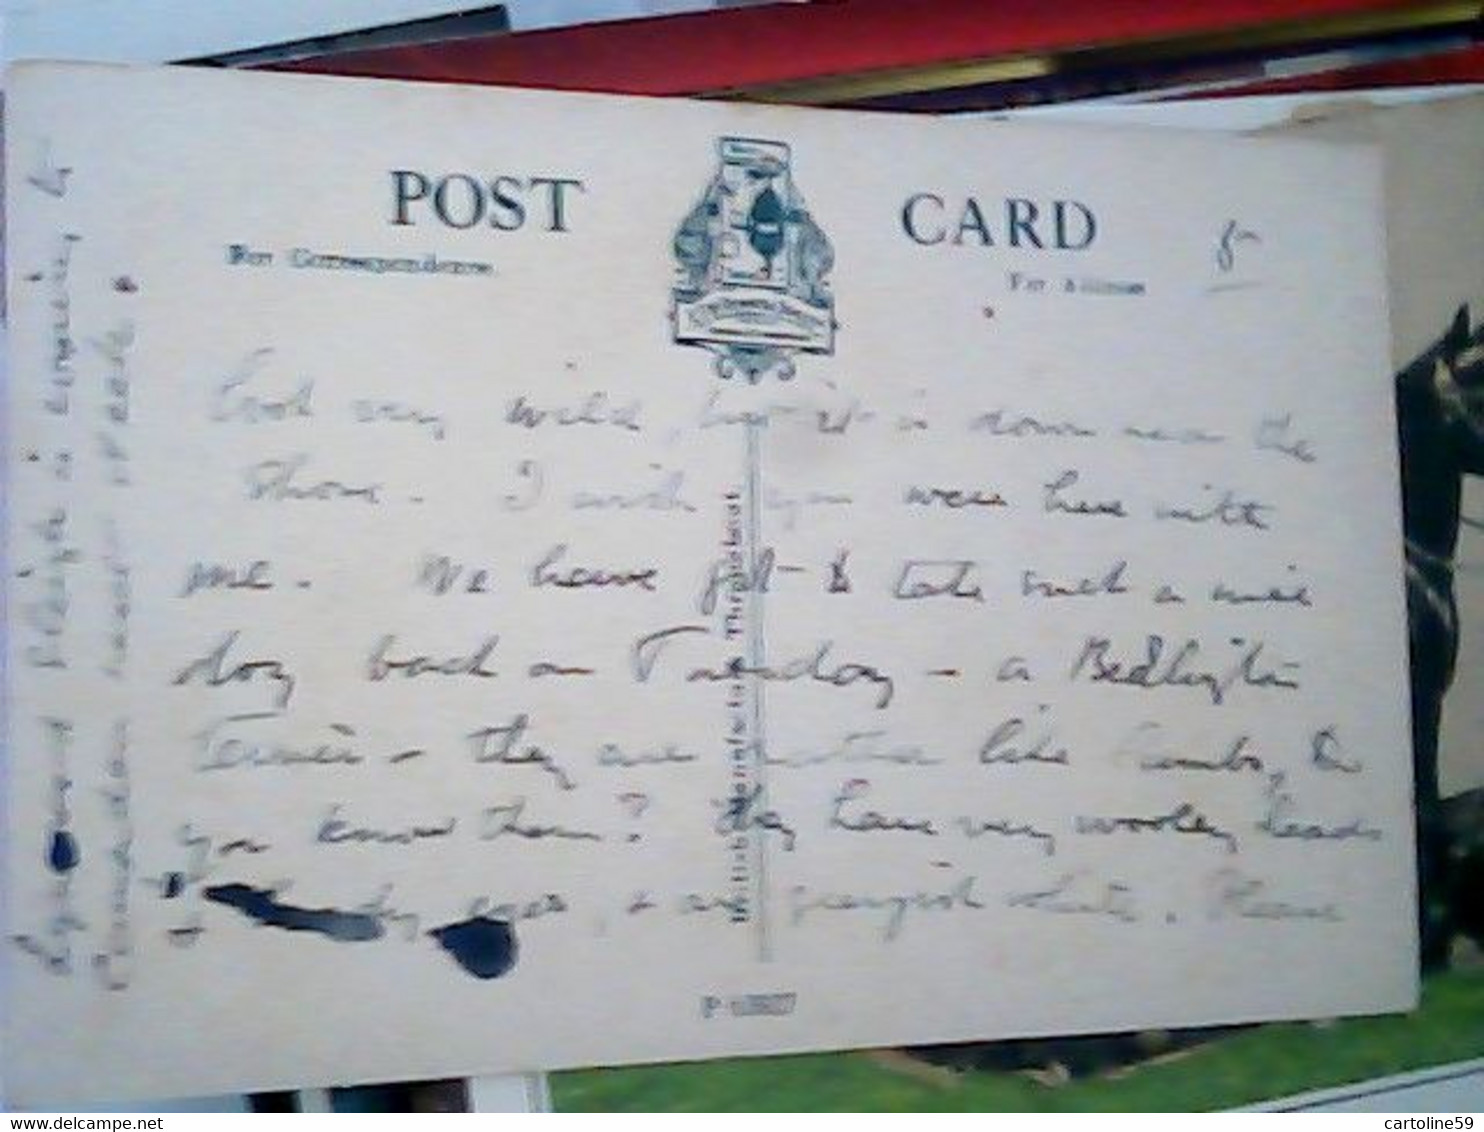 POST CARD
For Correspondence For Address
5/-
look very wild, but it is down near the
shore. I wish you were here with
me. We have got to take such a nice
dog back on Tuesday - a Bedlington
Terrier - they are rather like lambs, Do
you know them? They have very wooley heads
eyes, & are greyish white. Please
British Manufacture Throughout
P
is enquiring
cartoline59